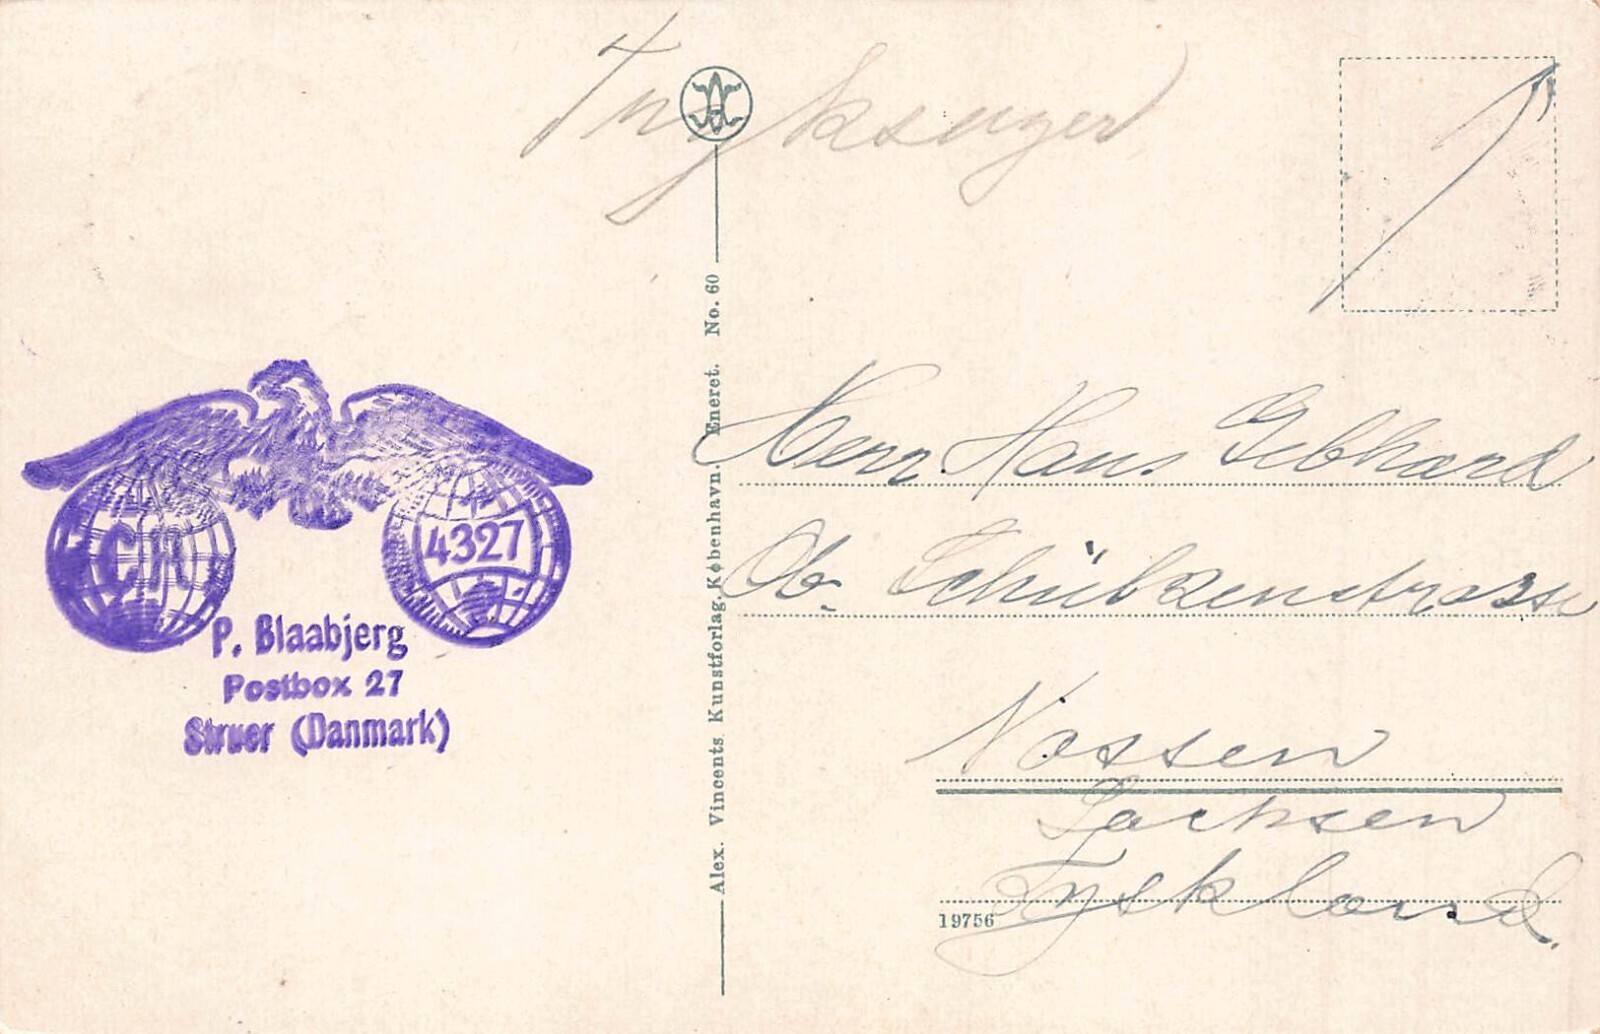 Tryksager
Herr Hans Gebhard
Ob. Schützenstrasse
Nossen
Sachsen
Tyskland.
19756
Alex. Vincents Kunstforlag. København. Eneret. No. 60
CK
4327
P. Blaabjerg
Postbox 27
Struer (Danmark)